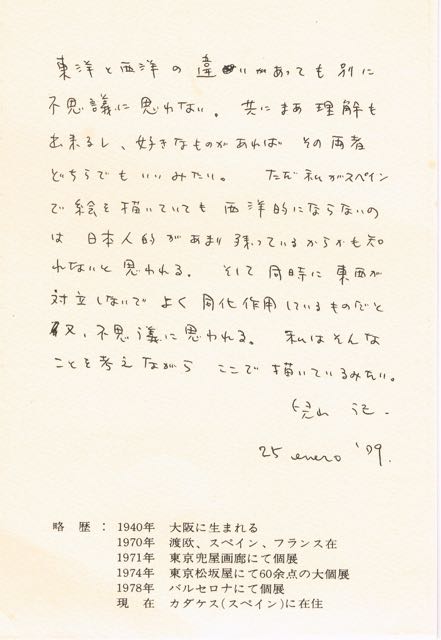 東洋と西洋の違いがあっても別に
不思議に思わない。 共にまあ理解も
出来るし、好きなものがあれば その両者
どちらでもいいみたい。 ただ私がスペイン
で絵を描いていても 西洋的にならないの
は 日本人的があまり残っているからかも知
れないと思われる。 そして同時に東西が
対立しないで よく同化作用しているものだと
又、不思議に思われる。 私はそんな
ことを考えながら ここで描いているみたい。
記
25 enero '79.
略 歴 : 1940年 大阪に生まれる
1970年 渡欧、スペイン、フランス在
1971年 東京兜屋画廊にて個展
1974年 東京松坂屋にて60余点の大個展
1978年 バルセロナにて個展
現 在 カダケス(スペイン)に在住